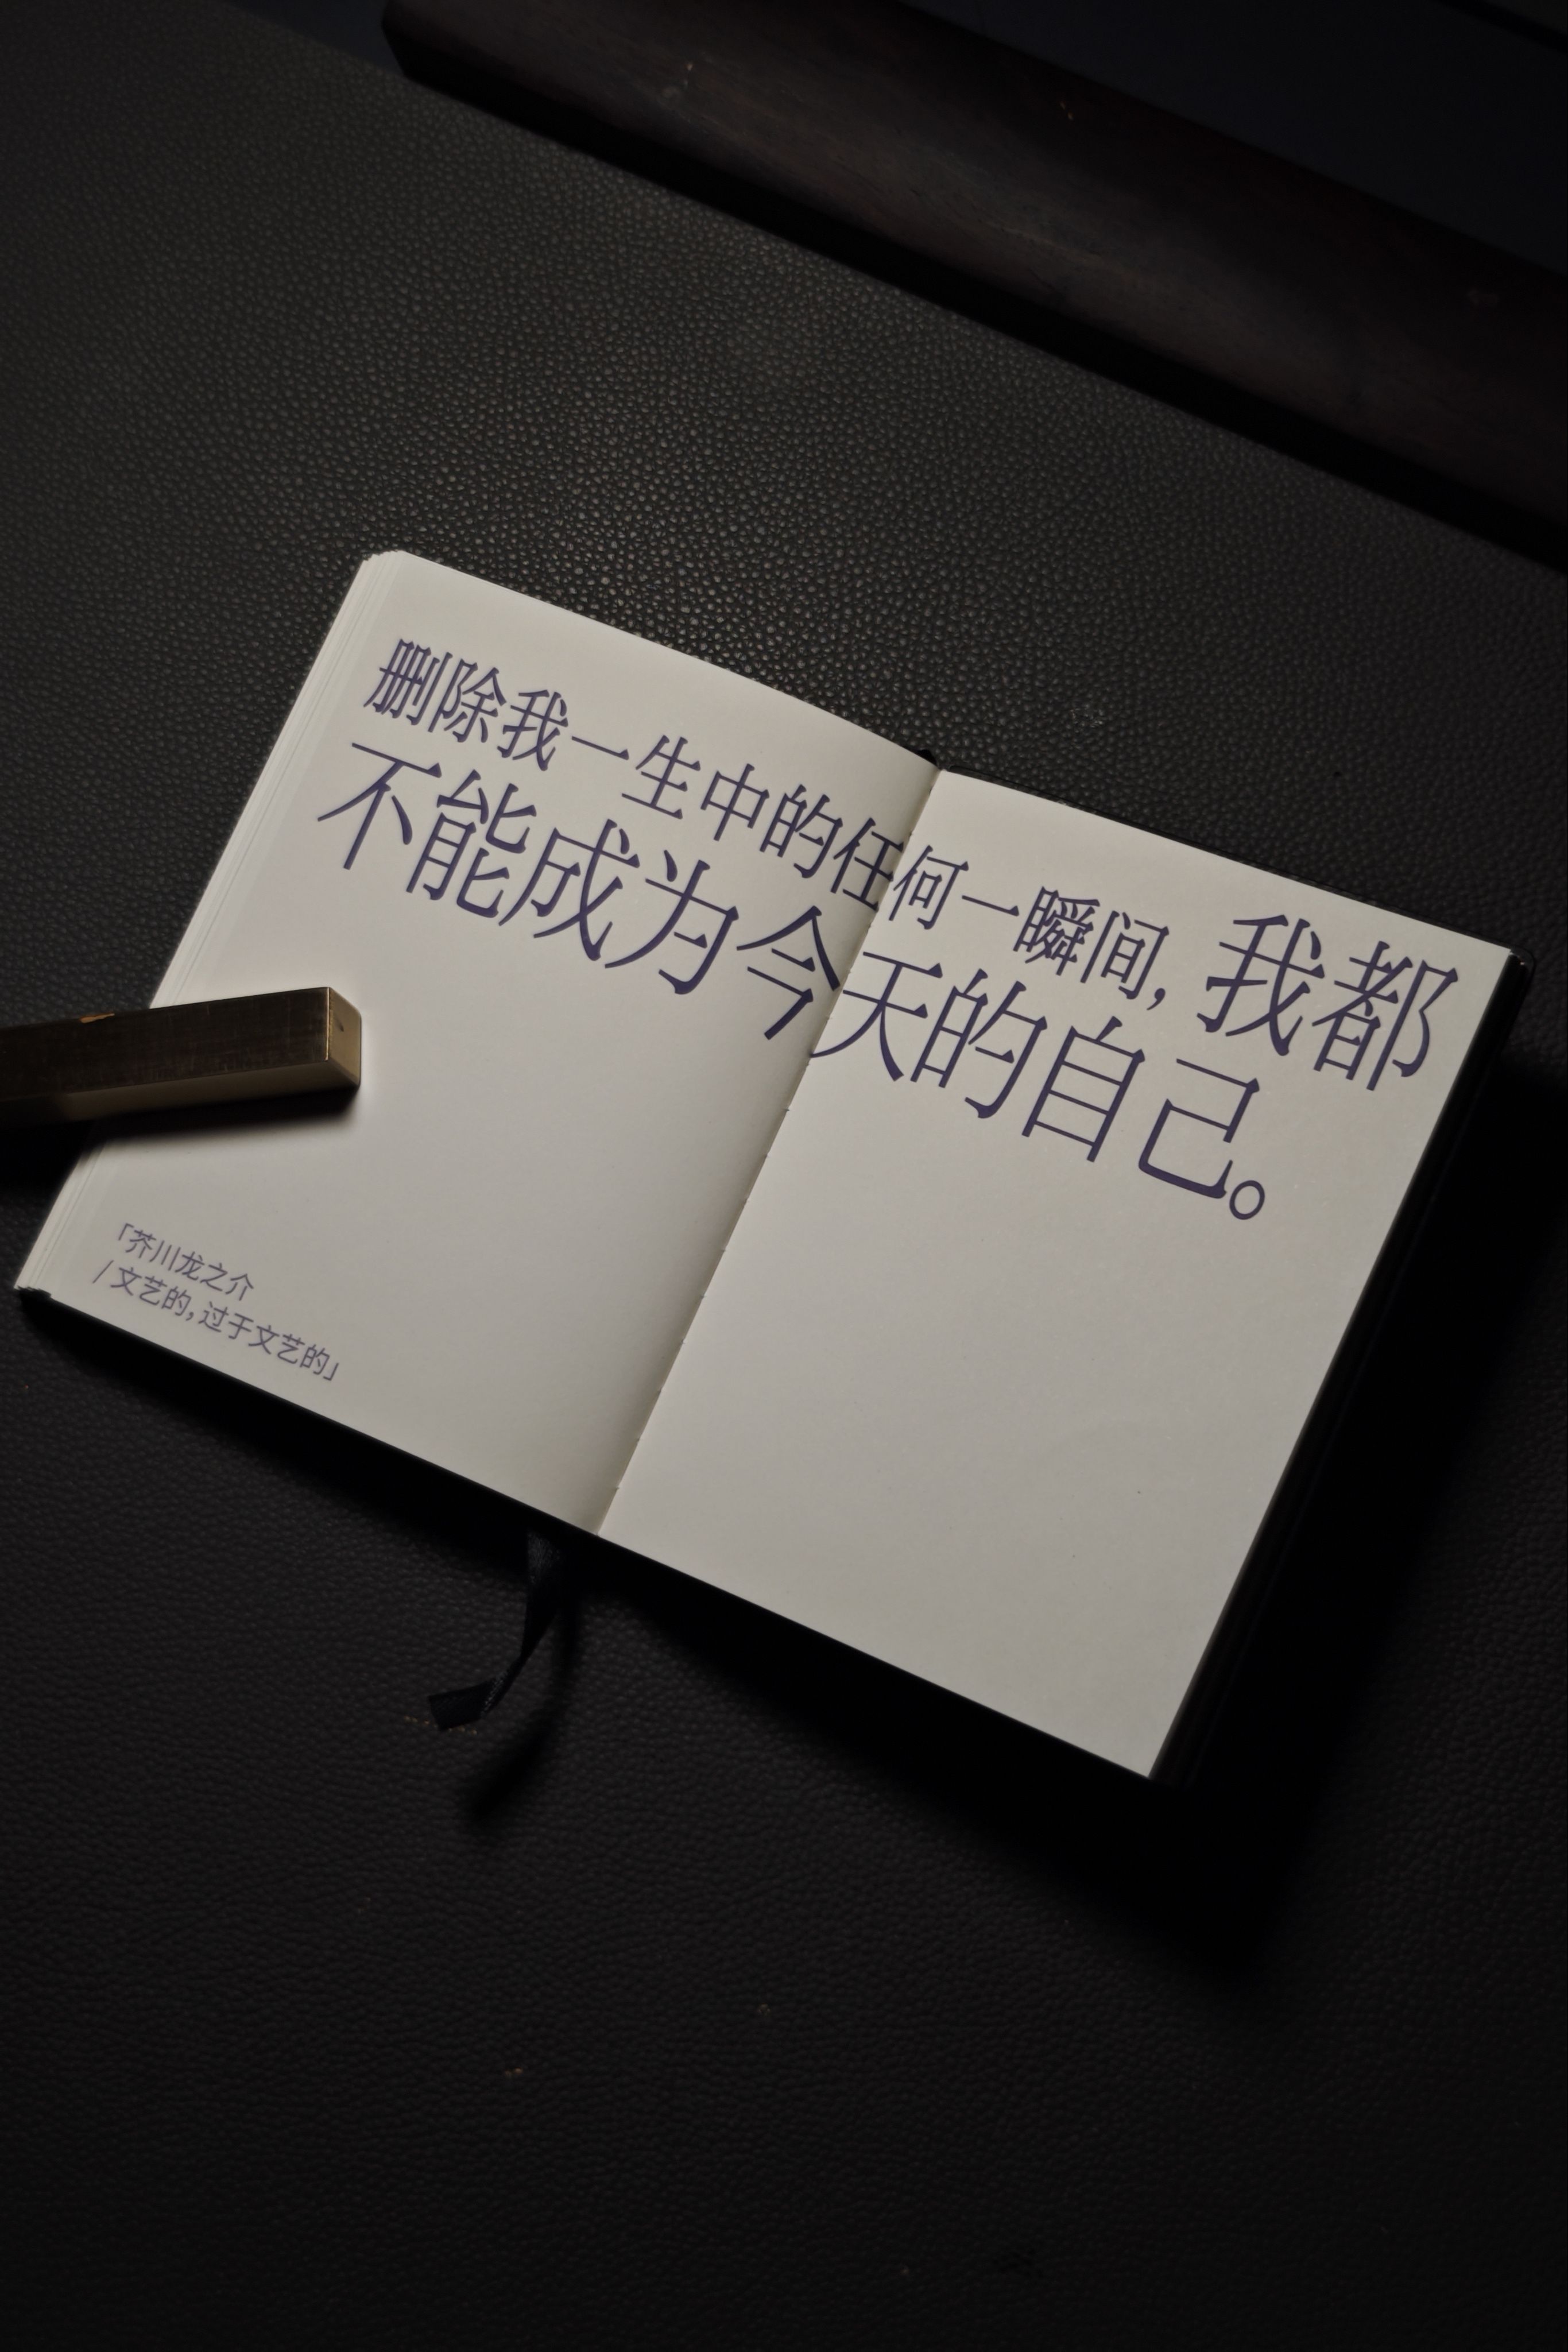 删除我一生中的任何一瞬间，我都
不能成为今天的自己。
「芥川龙之介
/ 文艺的，过于文艺的」